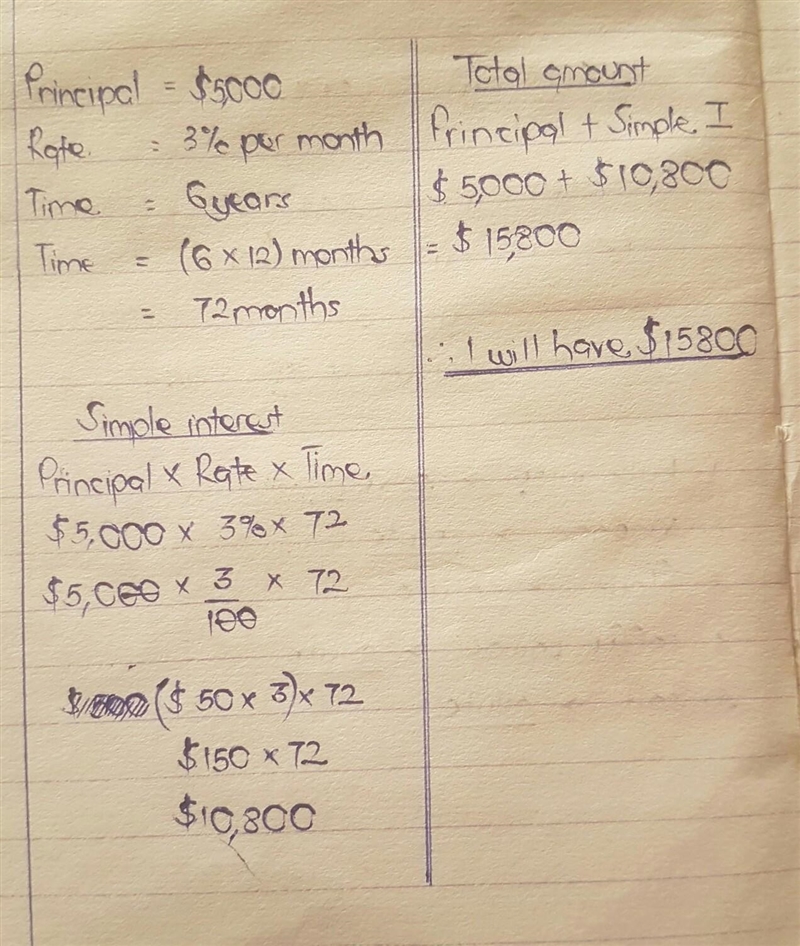 Principal = $5,000
Rate = 3% per month
Time = 6 years
Time = (6 × 12) months
= 72 months
Simple interest
Principal × Rate × Time
$5,000 × 3% × 72
$5,000 × 3/100 × 72
($ 50 × 3) × 72
$150 × 72
$10,800
Total amount
Principal + Simple I
$ 5,000 + $10,800
= $ 15,800
∴ I will have $15800